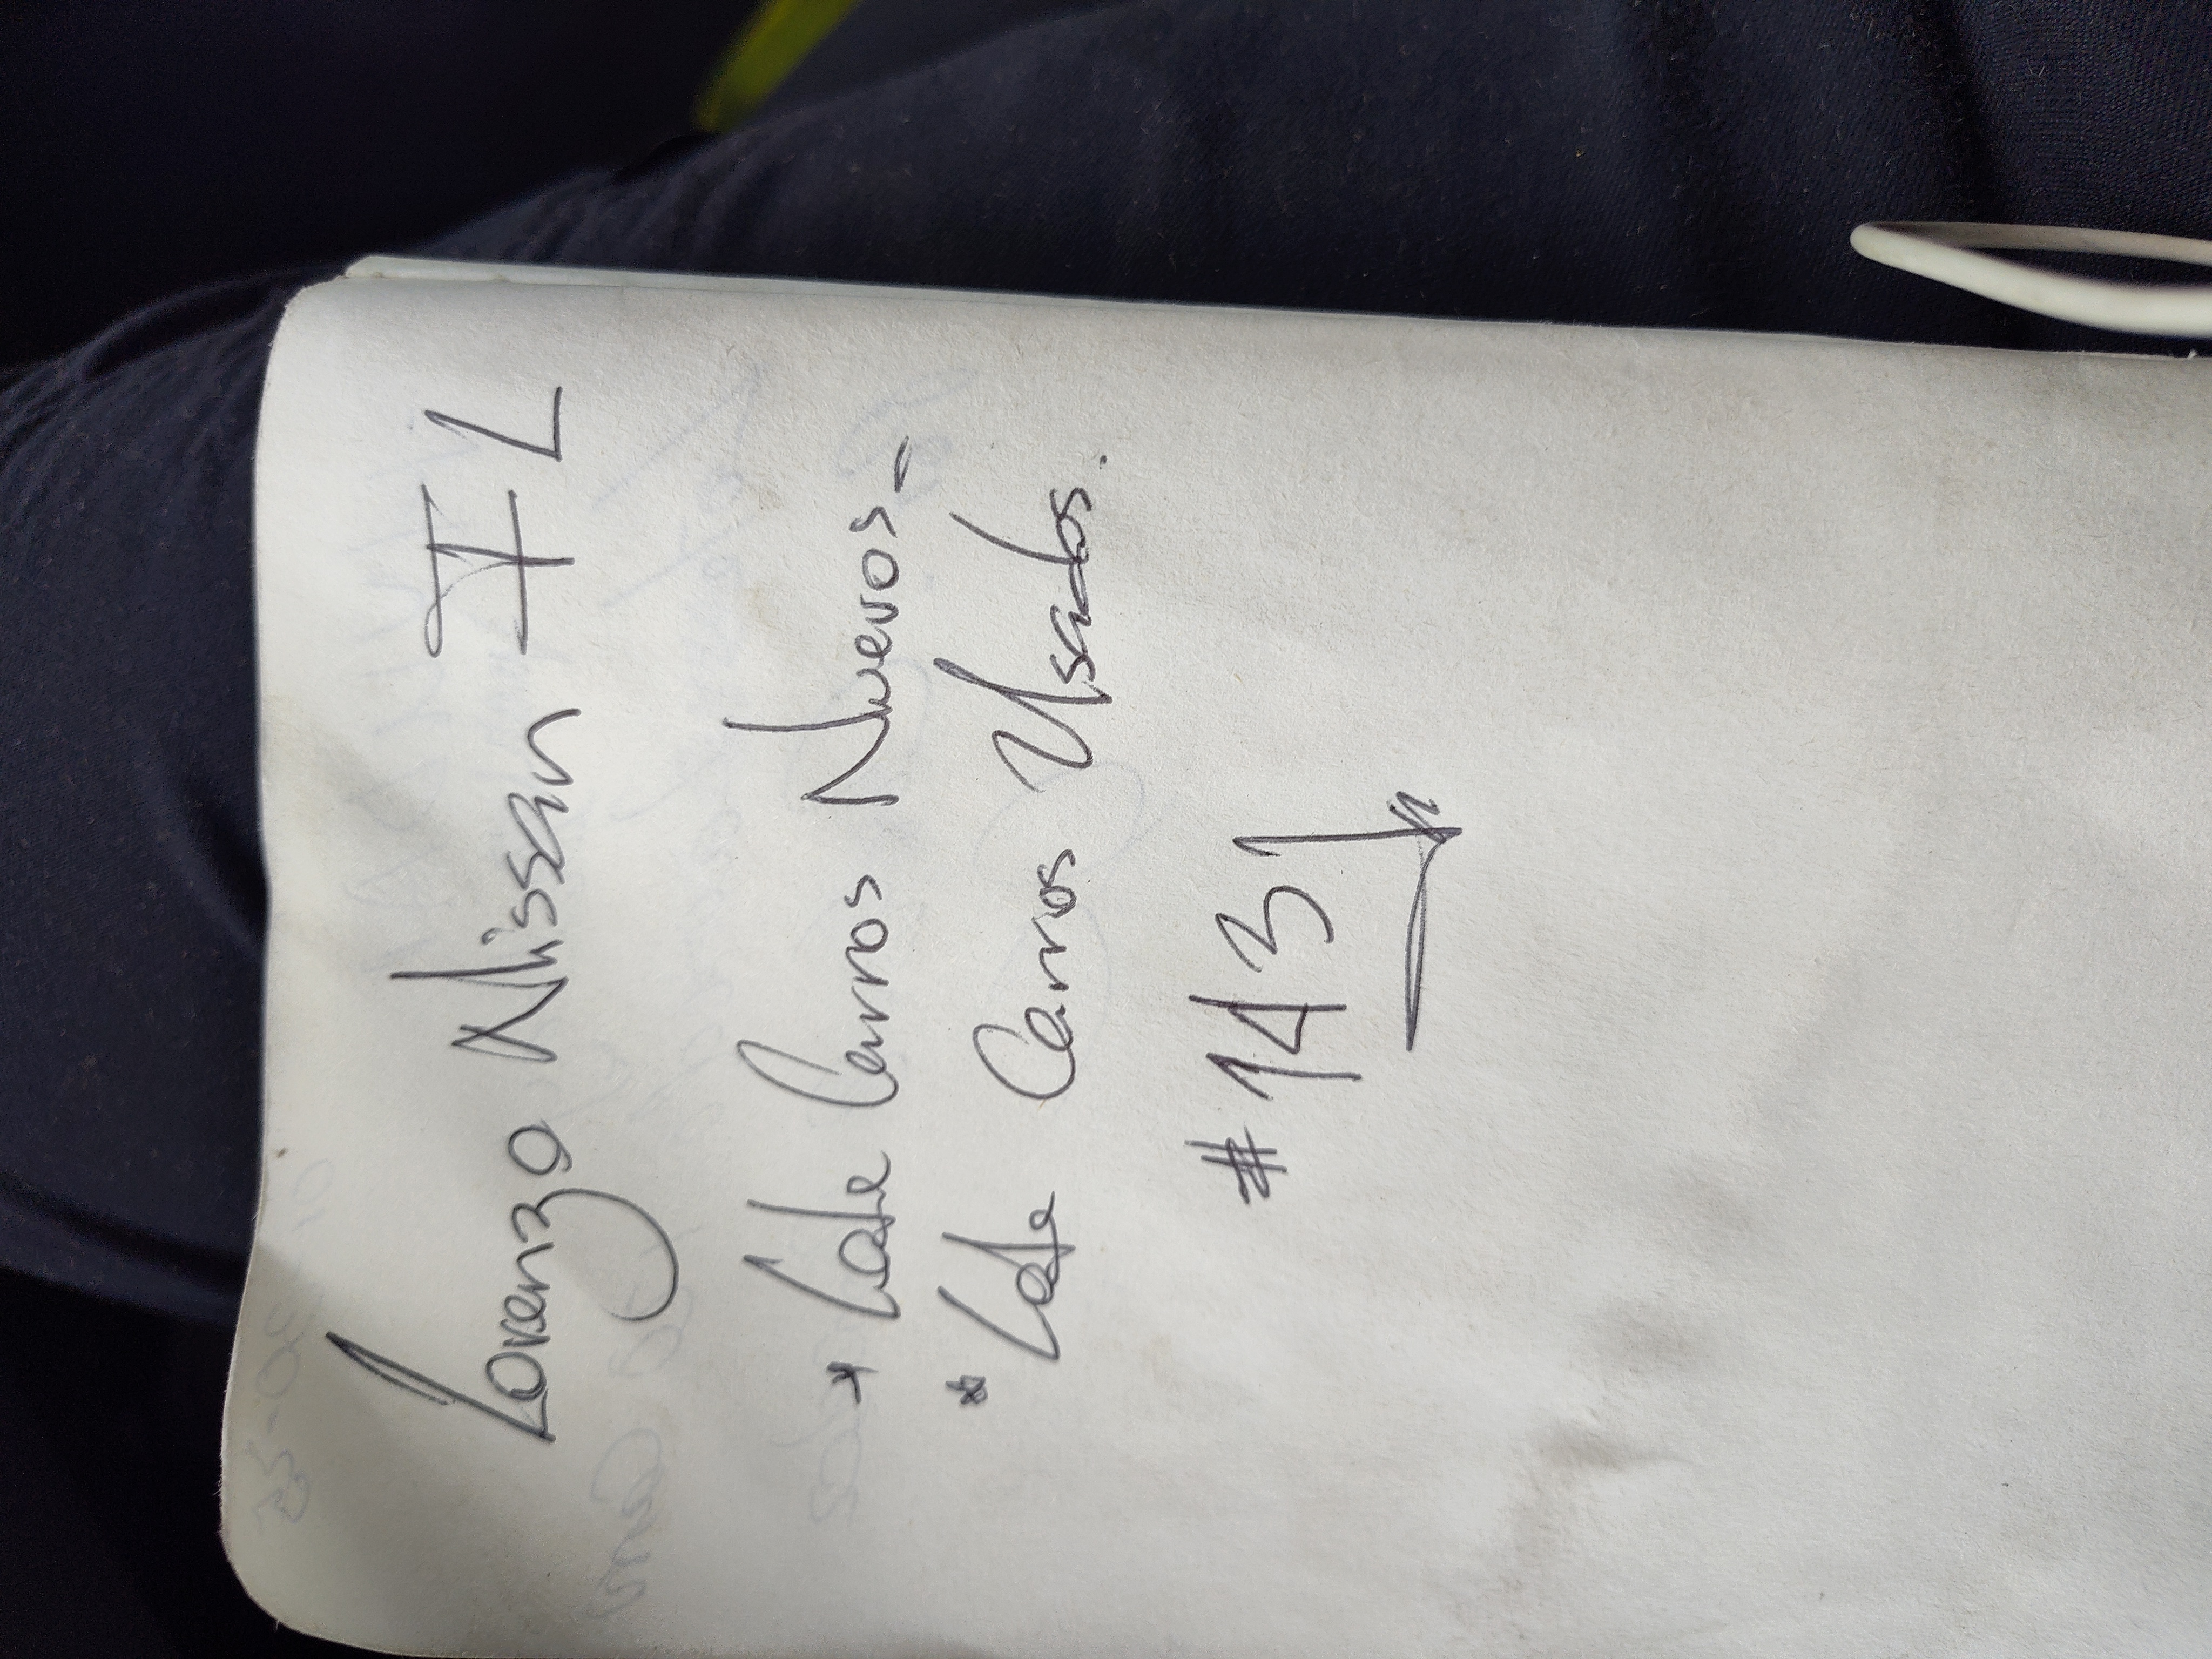 Lorenzo Nissan FL
* Lote Carros Nuevos-
* Lote Carros Usados.
#1431